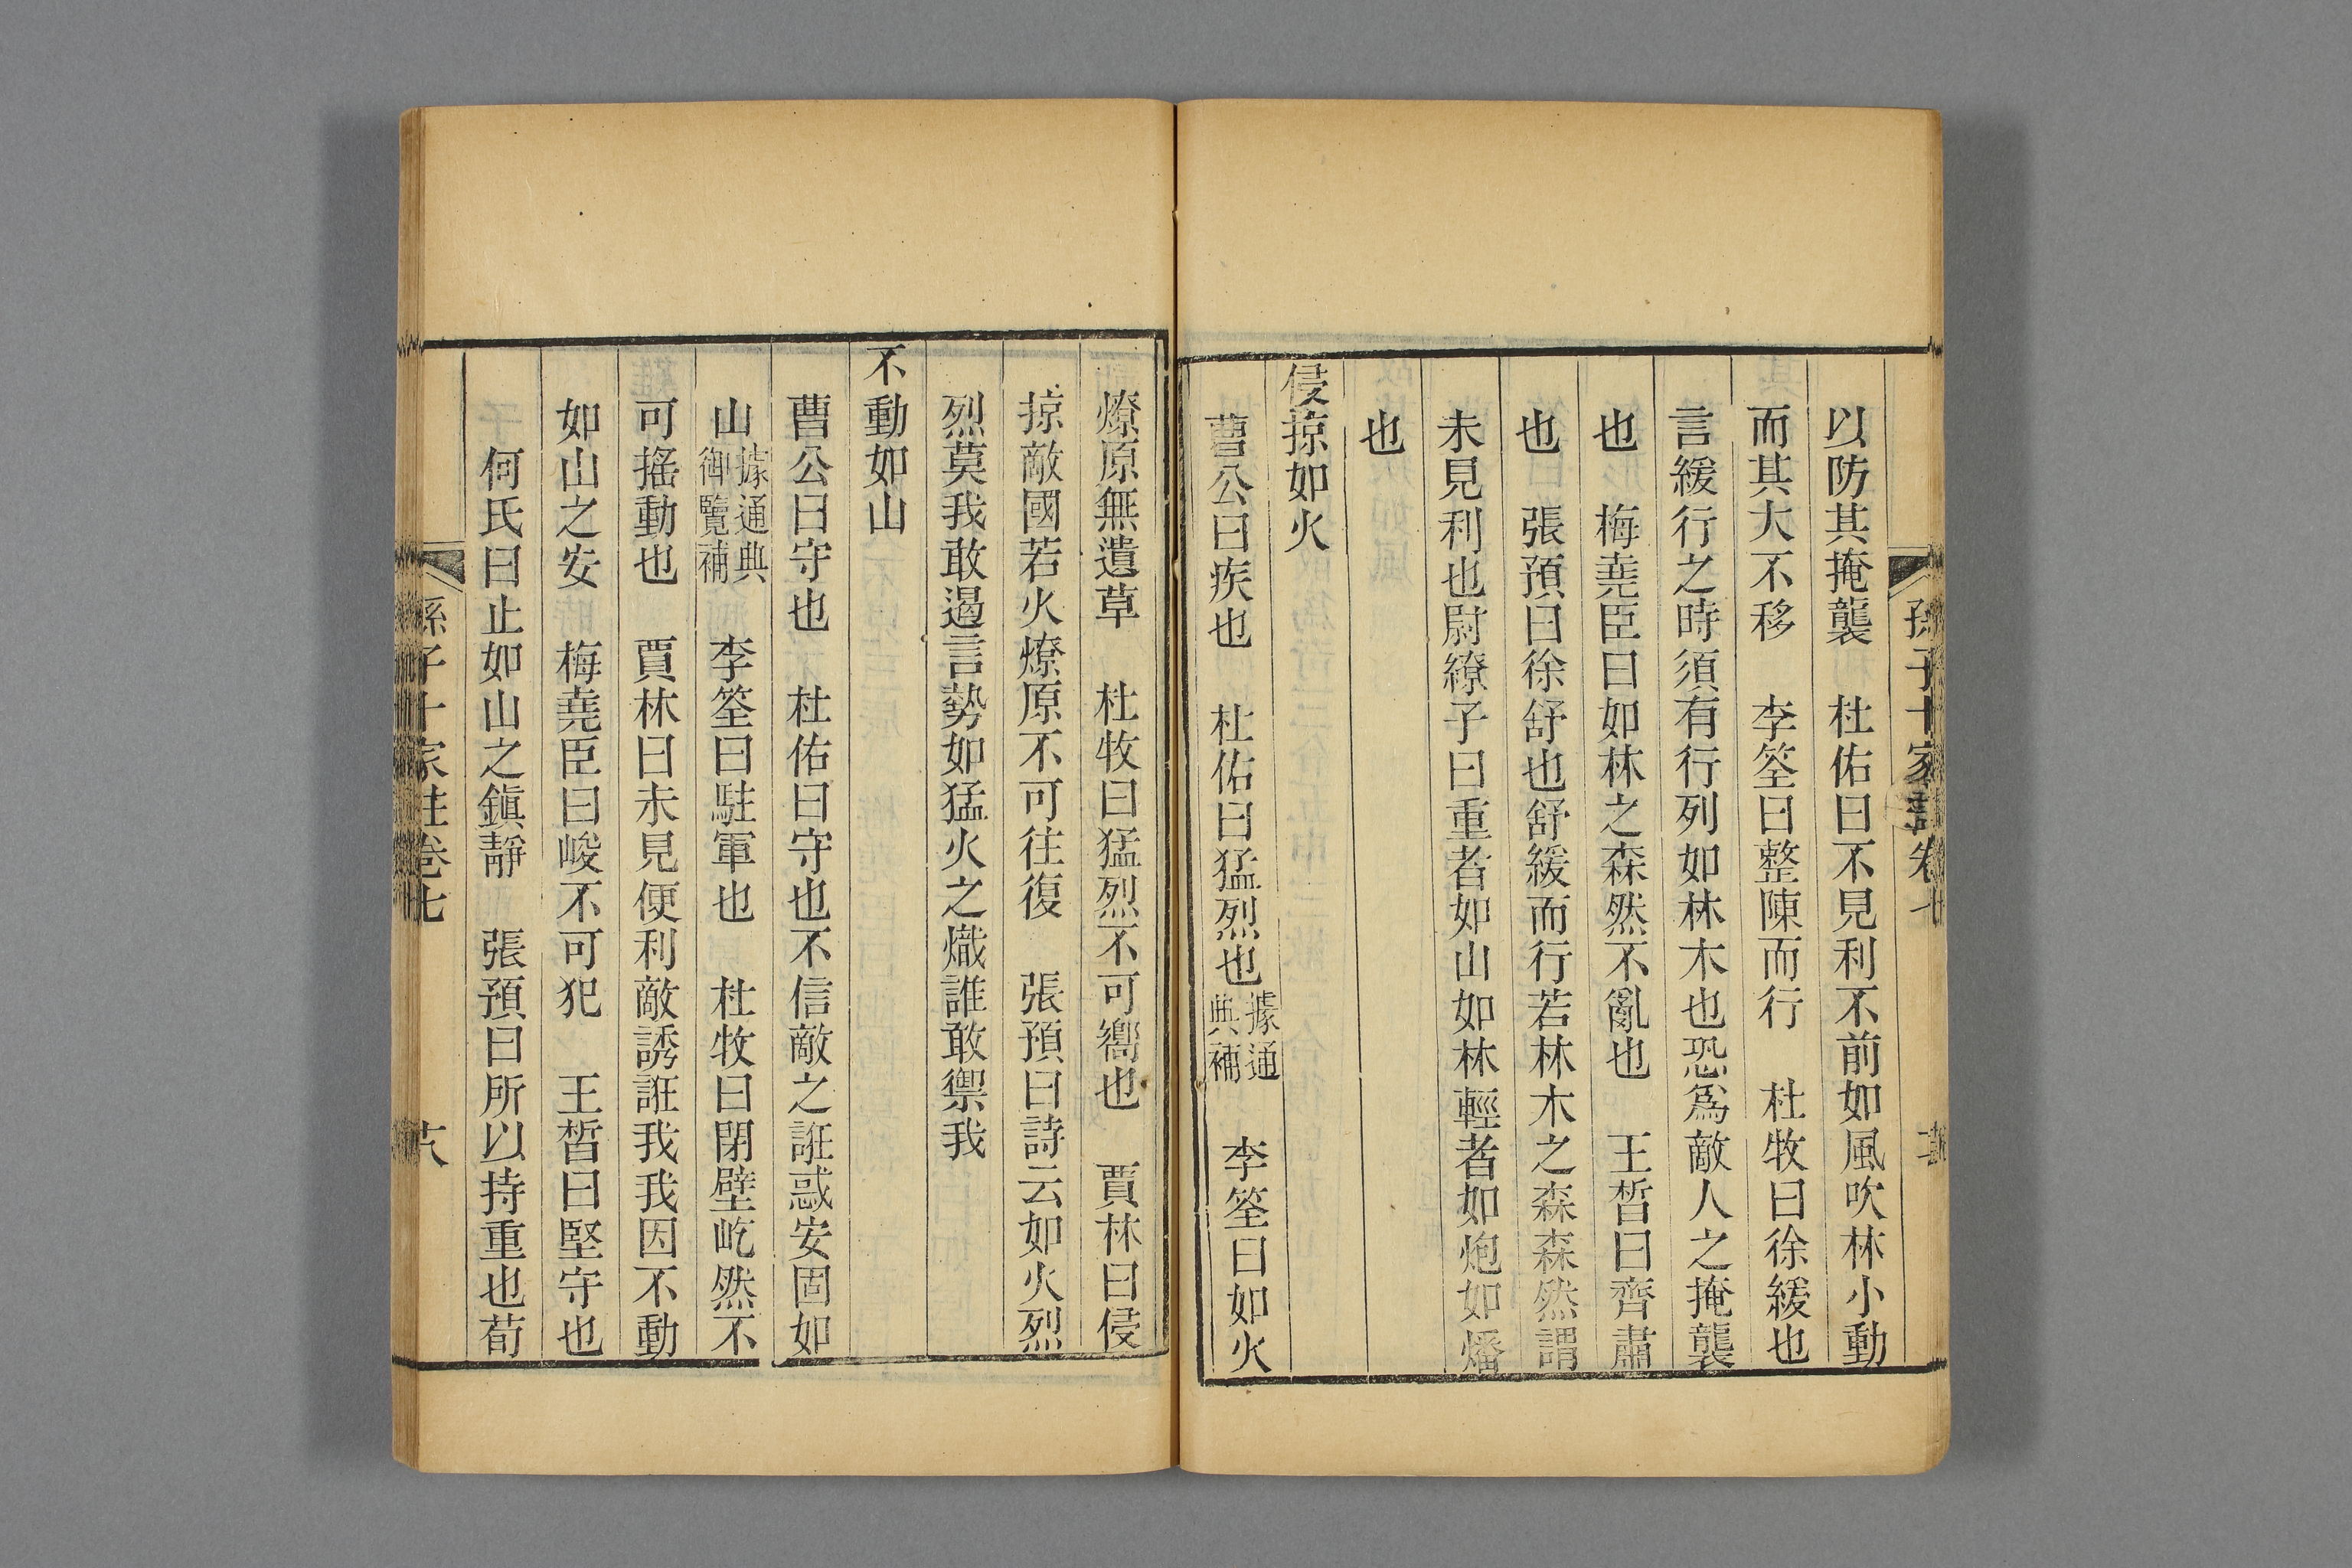 孫子十家註卷七
以防其掩襲　杜佑曰不見利不前如風吹林小動
而其大不移　李筌曰整陳而行　杜牧曰徐緩也
言緩行之時須有行列如林木也恐爲敵人之掩襲
也　梅堯臣曰如林之森然不亂也　王晳曰齊肅
也　張預曰徐舒也舒緩而行若林木之森森然謂
未見利也尉繚子曰重者如山如林輕者如炮如燔
也
侵掠如火
曹公曰疾也　杜佑曰猛烈也據通典補　李筌曰如火
燎原無遺草　杜牧曰猛烈不可嚮也　賈林曰侵
掠敵國若火燎原不可往復　張預曰詩云如火烈
烈莫我敢遏言勢如猛火之熾誰敢禦我
不動如山
曹公曰守也　杜佑曰守也不信敵之誑惑安固如
山據通典御覽補　李筌曰駐軍也　杜牧曰閉壁屹然不
可搖動也　賈林曰未見便利敵誘誑我我因不動
如山之安　梅堯臣曰峻不可犯　王晳曰堅守也
何氏曰止如山之鎮靜　張預曰所以持重也荀
孫子十家註卷七